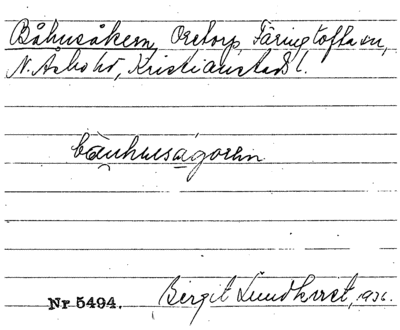 Båhusåkern, Oretorp, Färingtofta sn,
N. Åsbo hd, Kristianstads l.
bauhusagoren
Nr 5494. Bergit Lundkvist, 1936.